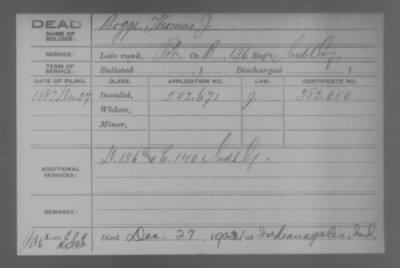 DEAD
NAME OF SOLDIER: Boggs, Thomas J.
SERVICE: Late rank, Pvt. Co. D, 136 Regt. Ind. Inf.
TERM OF SERVICE: Enlisted , 1 Discharged , 1
DATE OF FILING. CLASS. APPLICATION NO. LAW. CERTIFICATE NO.
1883 Nov 27 Invalid, 502.671 J. 382.050
Widow,
Minor,
ADDITIONAL SERVICES: 140 Ind. Inf.
REMARKS:
Died Dec. 27, 192 at Indianapolis, Ind.